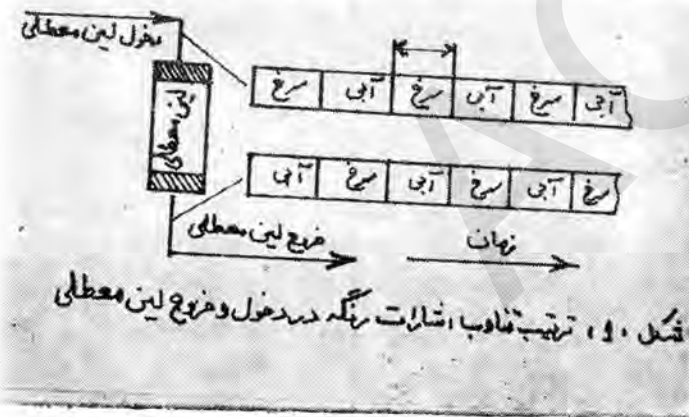 دخول لین معطلی
لین معطلی
سرخ آبی سرخ آبی سرخ آبی
آبی سرخ آبی سرخ آبی سرخ
خروج لین معطلی
زمان
شکل ۱، ترتیب تناوب اشارات رنگه در دخول و خروج لین معطلی